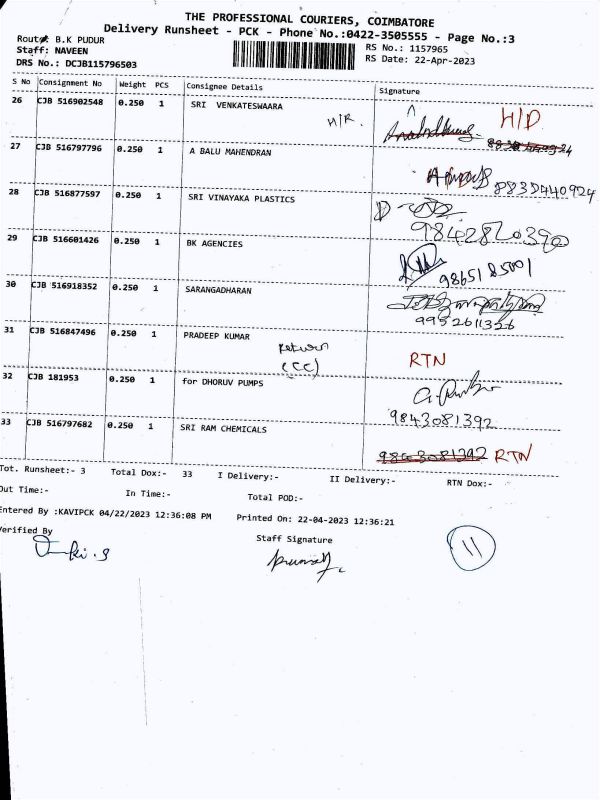 THE PROFESSIONAL COURIERS, COIMBATORE
Delivery Runsheet - PCK - Phone No.:0422-3505555 - Page No.:3
Route: B.K PUDUR
RS No.: 1157965
Staff: NAVEEN
RS Date: 22-Apr-2023
DRS No.: DCJB115796503
S No Consignment No Weight PCS Consignee Details Signature
26 CJB 516902548 0.250 1 SRI VENKATESWAARA H/R. H/D
27 CJB 516797796 0.250 1 A BALU MAHENDRAN 8838440924
28 CJB 516877597 0.250 1 SRI VINAYAKA PLASTICS
29 CJB 516601426 0.250 1 BK AGENCIES 9865185001
30 CJB 516918352 0.250 1 SARANGADHARAN
9952611326
31 CJB 516847496 0.250 1 PRADEEP KUMAR RTN
Return
(CC)
32 CJB 181953 0.250 1 for DHORUV PUMPS
9843081392
33 CJB 516797682 0.250 1 SRI RAM CHEMICALS
9843081392 RTN
Tot. Runsheet:- 3 Total Dox:- 33 I Delivery:- II Delivery:- RTN Dox:-
Out Time:- In Time:- Total POD:-
Entered By :KAVIPCK 04/22/2023 12:36:08 PM Printed On: 22-04-2023 12:36:21
Verified By
Staff Signature
11